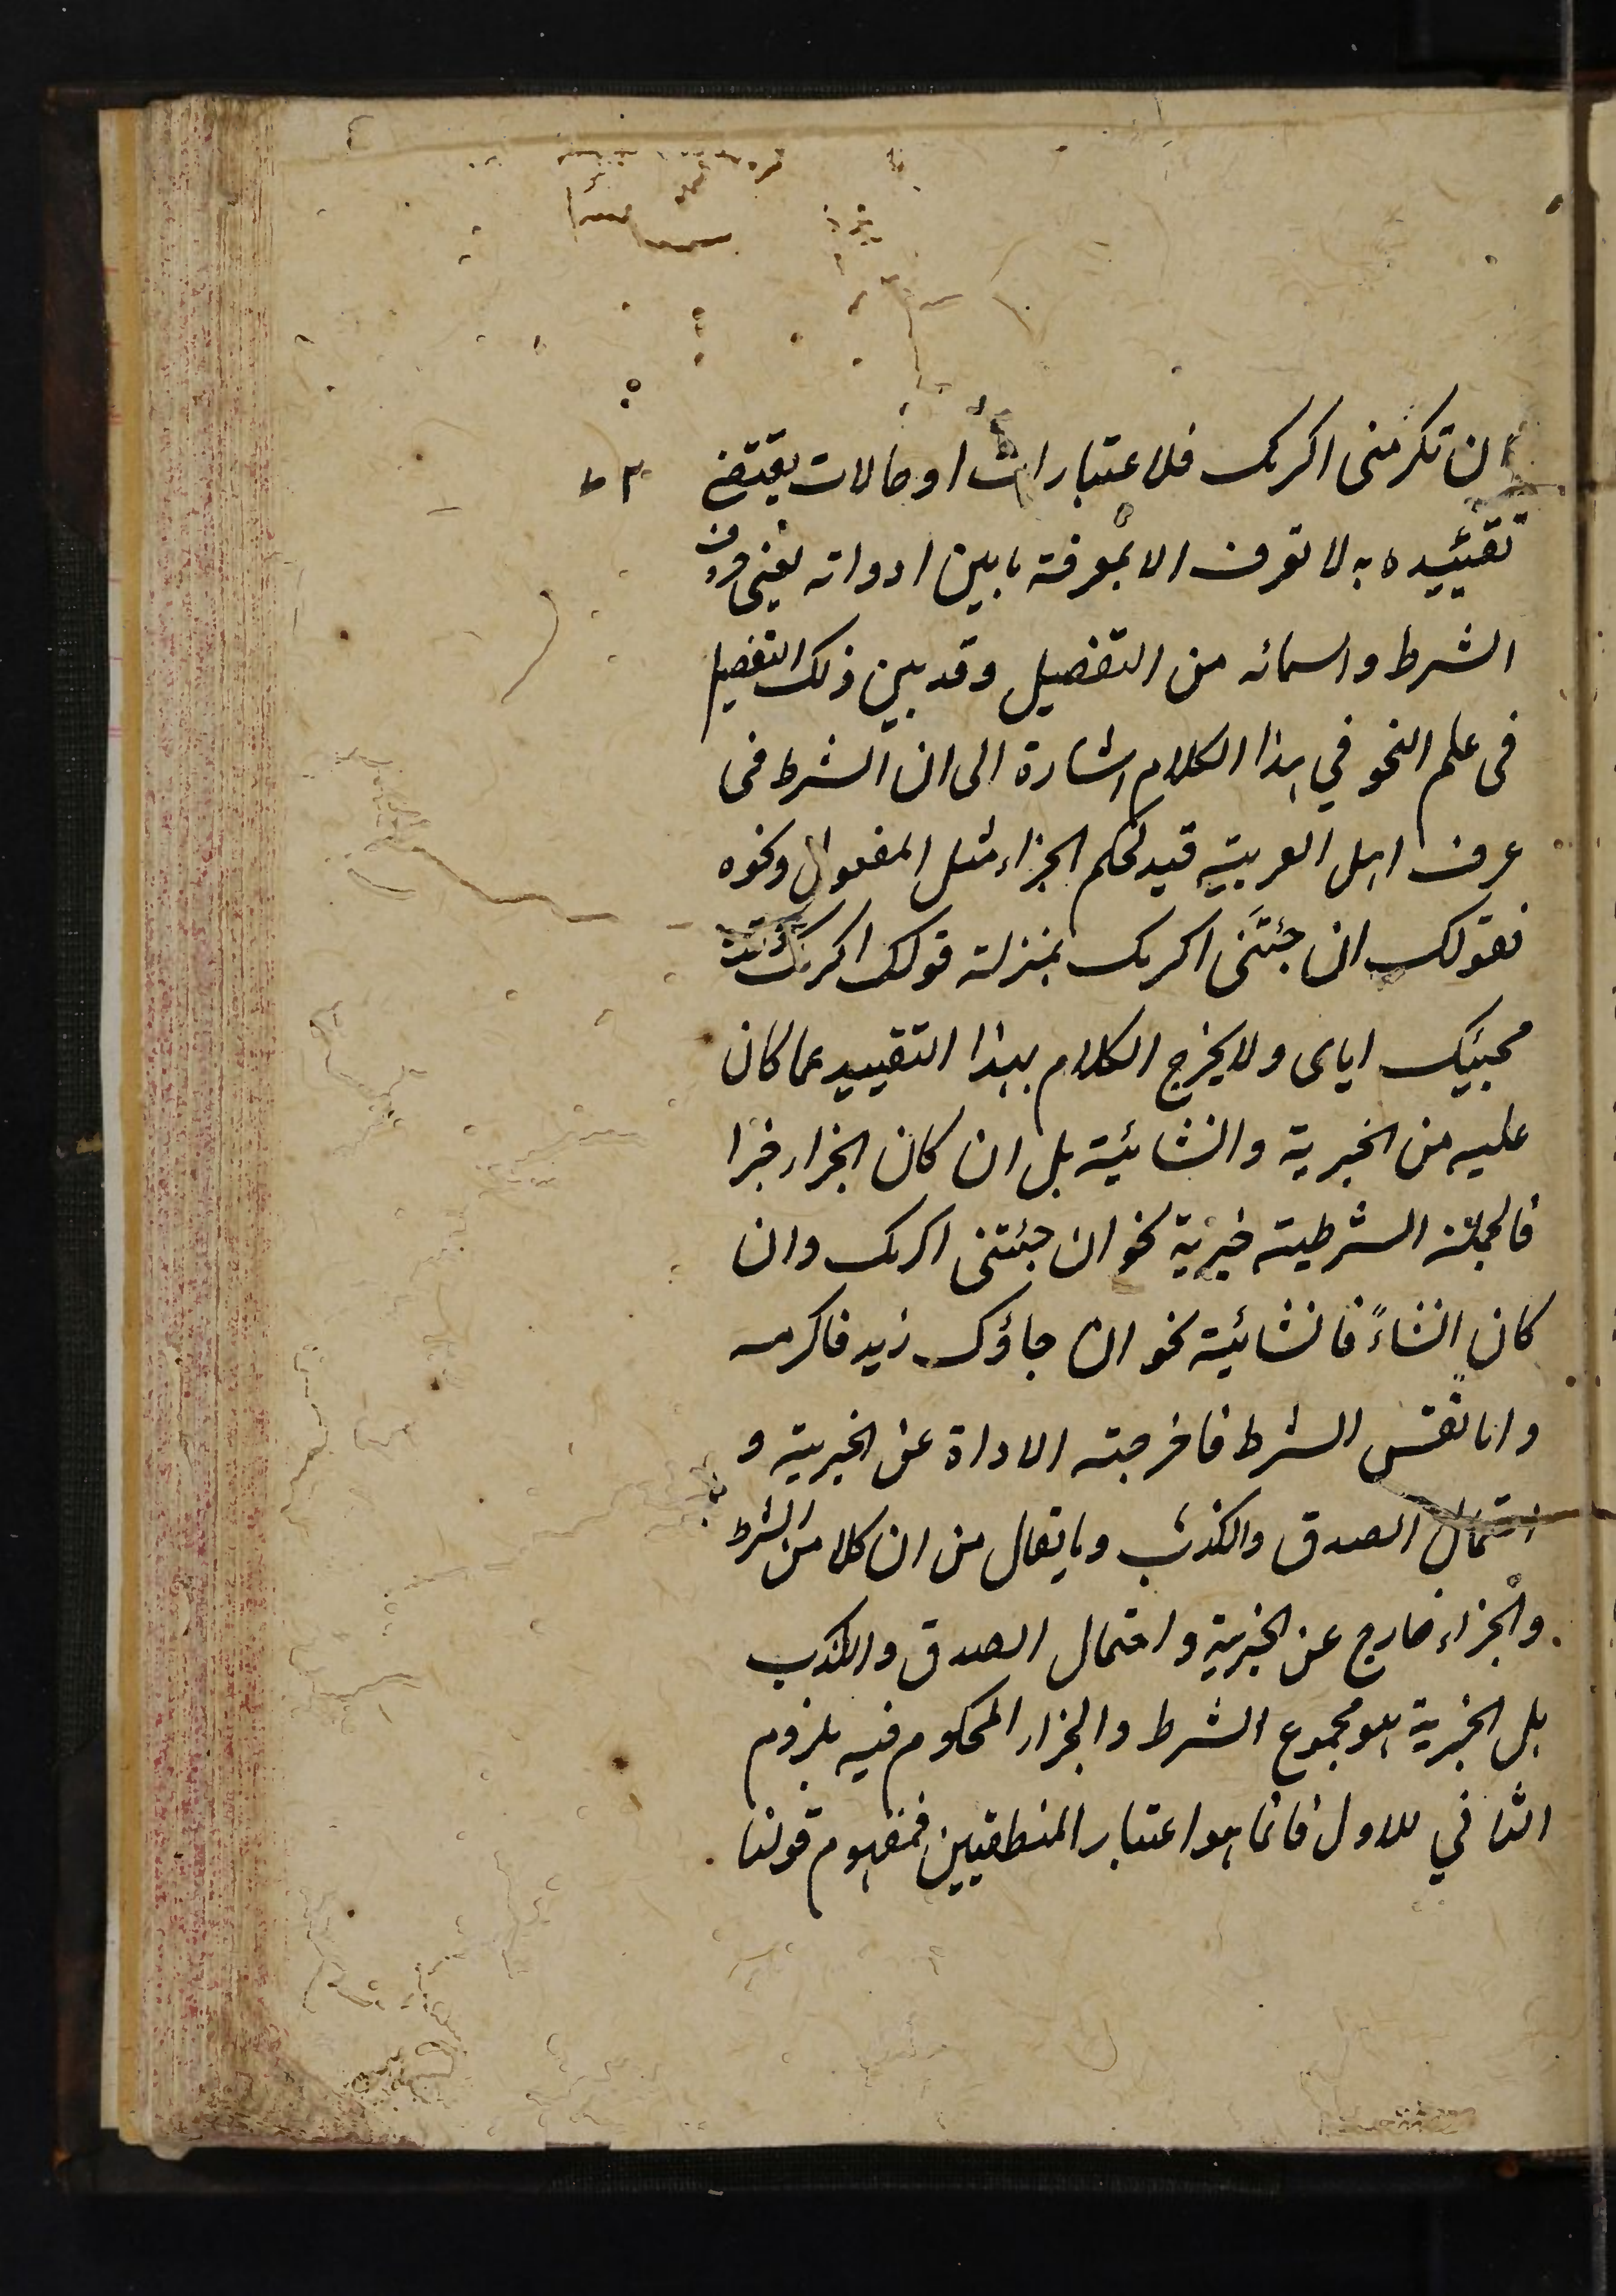 ان تكرمنى اكرمك فلاعتبارات او حالات يقتضى
تقييده به لا تعرف الا بمعرفة ما بين ادواته يعنى حروف
الشرط واسمائه من التفصيل وقد بين ذلك التفصيل
فى علم النحو في هذا الكلام اشارة الى ان الشرط فى
عرف اهل العربية قيد لحكم الجزاء مثل المفعول ونحوه
فقولك ان جئتنى اكرمك بمنزلة قولك اكرمك وقت
مجيئك اياى ولا يخرج الكلام بهذا التقييد عما كان
عليه من الخبرية وانشائية بل ان كان الجزاء خبرا
فالجملة الشرطية خبرية نحو ان جئتنى اكرمك وان
كان انشاءً فانشائية نحو ان جاؤك زيد فاكرمه
واما نفس الشرط فاخرجته الاداة عن الخبرية و
احتمال الصدق والكذب وما يقال من ان كلا من الشرط
والجزاء خارج عن الخبرية واحتمال الصدق والكذب
بل الخبرية هو مجموع الشرط والجزاء المحكوم فيه بلزوم
الثاني للاول فانما هو اعتبار المنطقيين فمفهوم قولنا